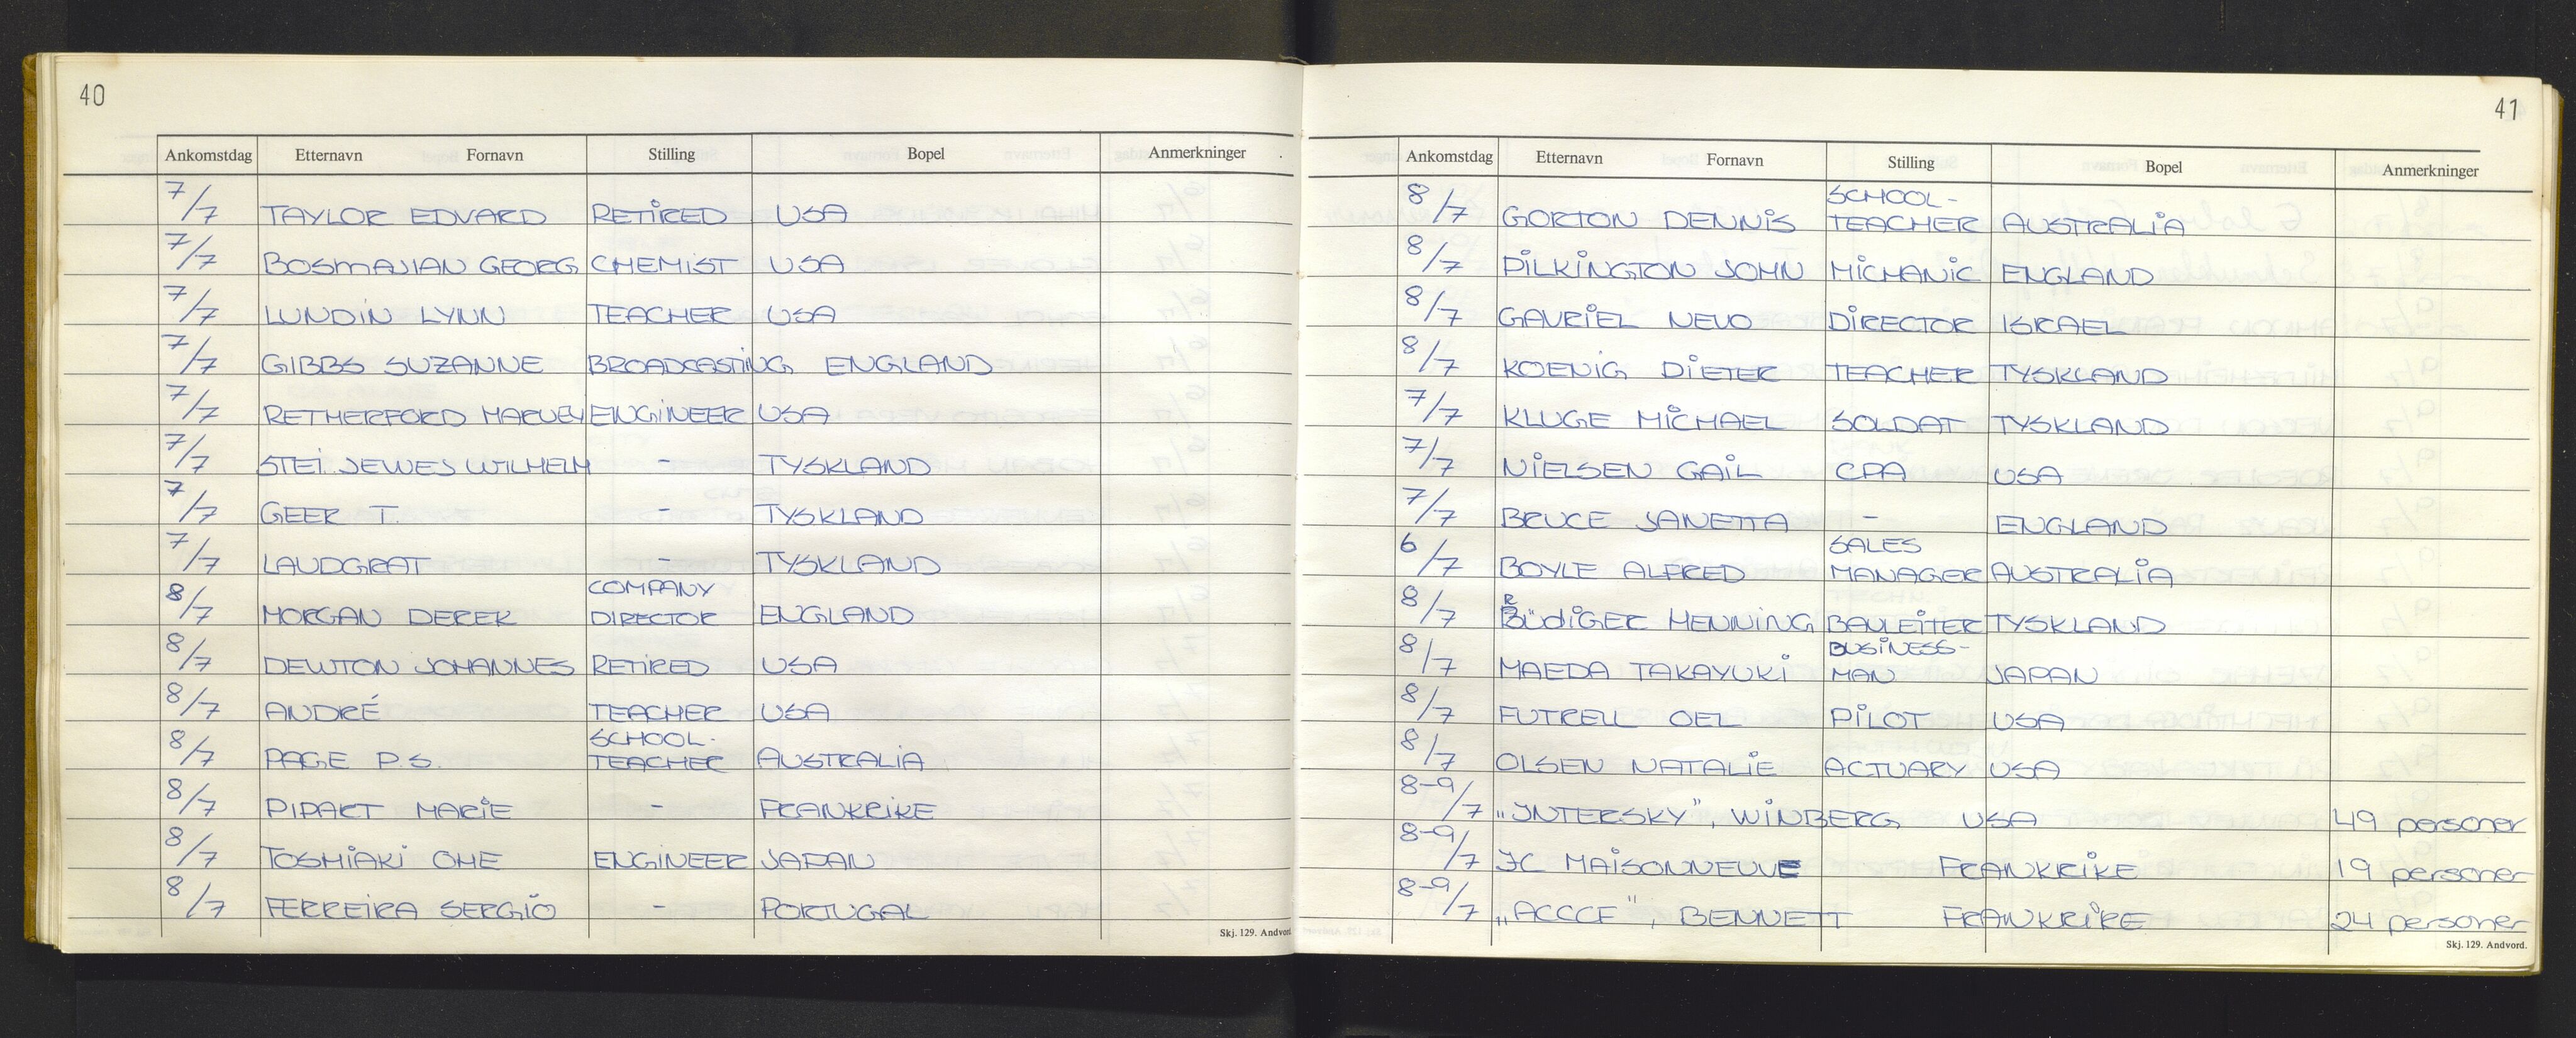 40
Ankomstdag Etternavn Fornavn Stilling Bopel Anmerkninger
7/7 TAYLOR EDVARD RETIRED USA
7/7 BOSMAJIAN GEORG CHEMIST USA
7/7 LUNDIN LYNN TEACHER USA
7/7 GIBBS SUZANNE BROADCASTING ENGLAND
7/7 RETHERFORD HARVEY ENGINEER USA
7/7 STEI. JEWES WILHELM - TYSKLAND
7/7 GEER T. - TYSKLAND
7/7 LAUDGRAT - TYSKLAND
8/7 MORGAN DEREK COMPANY DIRECTOR ENGLAND
8/7 DEWTON JOHANNES RETIRED USA
8/7 ANDRÉ TEACHER USA
8/7 PAGE P.S. SCHOOL-TEACHER AUSTRALIA
8/7 PIPART MARIE - FRANKRIKE
8/7 TOSHIAKI OHE ENGINEER JAPAN
8/7 FERREIRA SERGIO - PORTUGAL
Skj. 129. Andvord
41
Ankomstdag Etternavn Fornavn Stilling Bopel Anmerkninger
8/7 GORTON DENNIS SCHOOL-TEACHER AUSTRALIA
8/7 PILKINGTON JOHN MICHANIC ENGLAND
8/7 GAVRIEL NEVO DIRECTOR ISRAEL
8/7 KOENIG DIETER TEACHER TYSKLAND
7/7 KLUGE MICHAEL SOLDAT TYSKLAND
7/7 NIELSEN GAIL CPA USA
7/7 BRUCE JANETTA - ENGLAND
6/7 BOYLE ALFRED SALES MANAGER AUSTRALIA
8/7 RÜDIGER HENNING BAULEITER TYSKLAND
8/7 MAEDA TAKAYUKI BUSINESS-MAN JAPAN
8/7 FUTRELL OEL PILOT USA
8/7 OLSEN NATALIE ACTUARY USA
8-9/7 „INTERSKY", WINBERG USA 49 personer
8-9/7 JC MAISONNEUVE FRANKRIKE 19 personer
8-9/7 „ACCCF", BENNETT FRANKRIKE 24 personer
Skj. 129. Andvord.